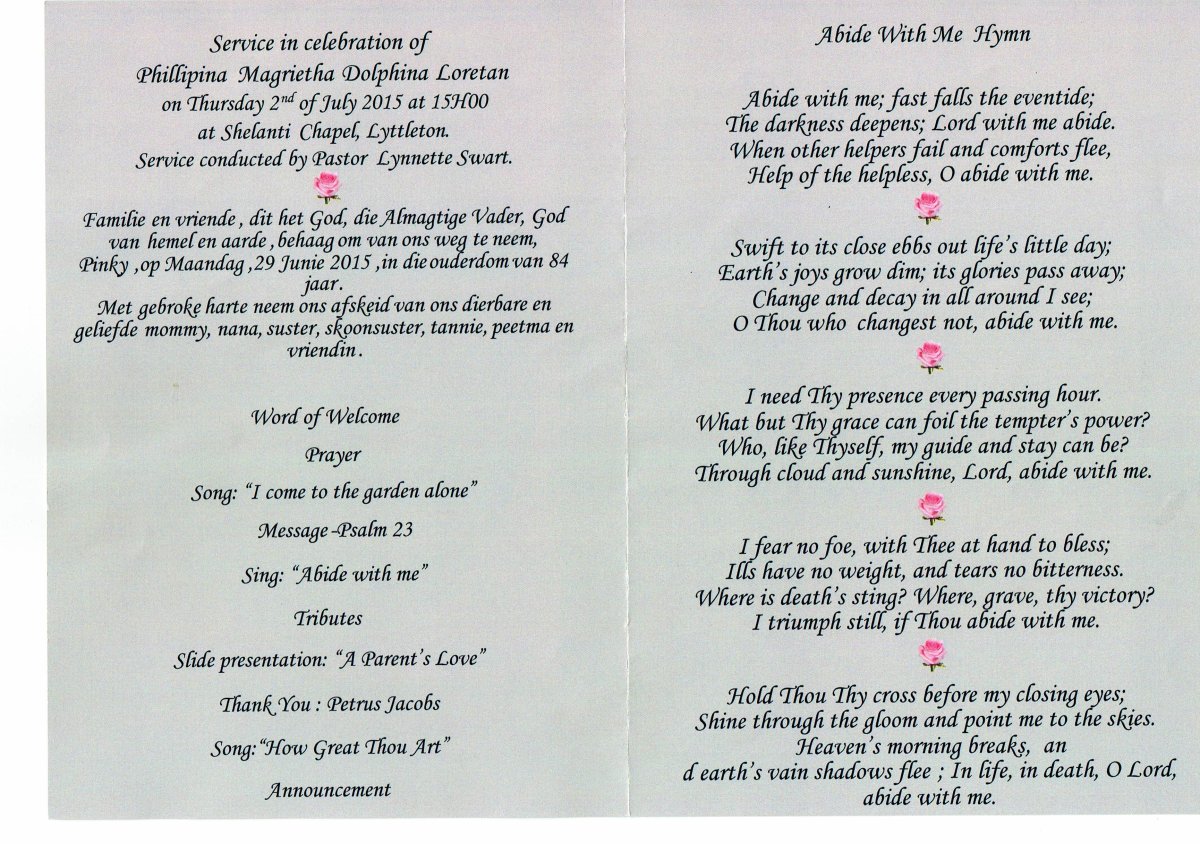 Service in celebration of
Phillipina Magrietha Dolphina Loretan
on Thursday 2nd of July 2015 at 15H00
at Shelanti Chapel, Lyttleton.
Service conducted by Pastor Lynnette Swart.
Familie en vriende, dit het God, die Almagtige Vader, God
van hemel en aarde, behaag om van ons weg te neem,
Pinky ,op Maandag ,29 Junie 2015 ,in die ouderdom van 84
jaar.
Met gebroke harte neem ons afskeid van ons dierbare en
geliefde mommy, nana, suster, skoonsuster, tannie, peetma en
vriendin.
Word of Welcome
Prayer
Song: "I come to the garden alone"
Message -Psalm 23
Sing: "Abide with me"
Tributes
Slide presentation: "A Parent's Love"
Thank You : Petrus Jacobs
Song:"How Great Thou Art"
Announcement
Abide With Me Hymn
Abide with me; fast falls the eventide;
The darkness deepens; Lord with me abide.
When other helpers fail and comforts flee,
Help of the helpless, O abide with me.
Swift to its close ebbs out life's little day;
Earth's joys grow dim; its glories pass away;
Change and decay in all around I see;
O Thou who changest not, abide with me.
I need Thy presence every passing hour.
What but Thy grace can foil the tempter's power?
Who, like Thyself, my guide and stay can be?
Through cloud and sunshine, Lord, abide with me.
I fear no foe, with Thee at hand to bless;
Ills have no weight, and tears no bitterness.
Where is death's sting? Where, grave, thy victory?
I triumph still, if Thou abide with me.
Hold Thou Thy cross before my closing eyes;
Shine through the gloom and point me to the skies.
Heaven's morning breaks, an
d earth's vain shadows flee ; In life, in death, O Lord,
abide with me.